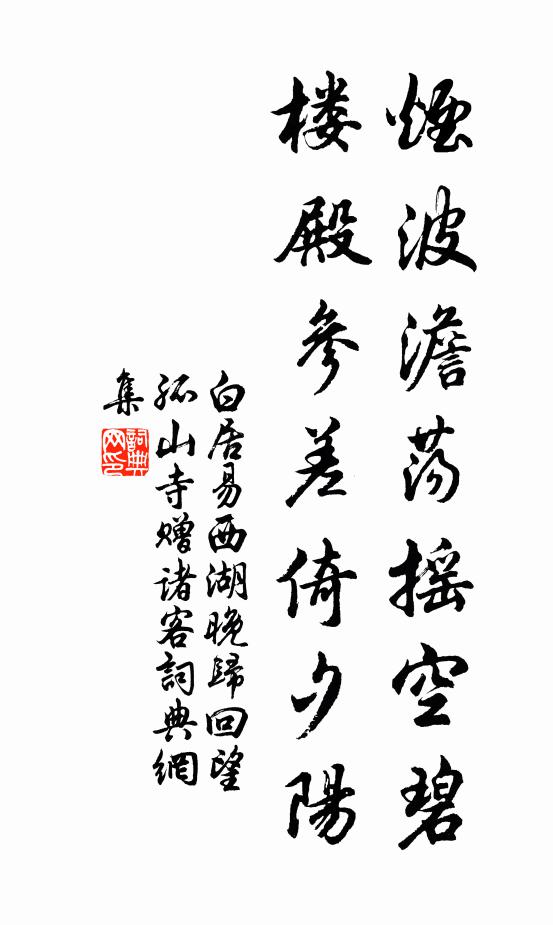 煙波澹荡摇空碧
楼殿參差倚夕陽
白居易西湖晚歸回望
孤山寺赠诸客詞典網
集
詞典
网印